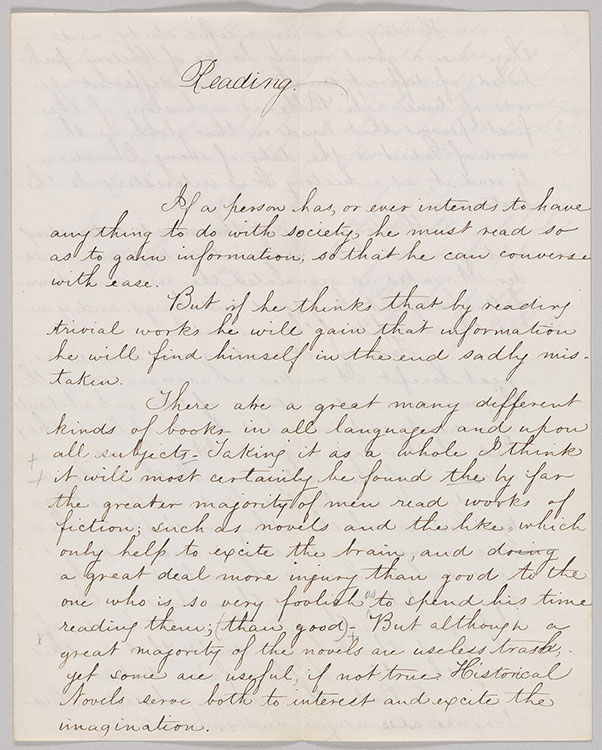 Reading.
If a person has, or ever intends to have
anything to do with society, he must read so
as to gain information, so that he can converse
with ease.
But if he thinks that by reading
trivial works he will gain that information
he will find himself in the end sadly mis-
taken.
There are a great many different
kinds of books in all languages and upon
all subjects - Taking it as a whole I think
it will most certainly be found the by far
the greater majority of men read works of
fiction; such as novels and the like, which
only help to excite the brain, and doing
a great deal more injury than good to the
one who is so very foolish as to spend his time
reading them; (than good) - But although a
great majority of the novels are useless trash,
yet some are useful, if not true. Historical
Novels serve both to interest and excite the
imagination.